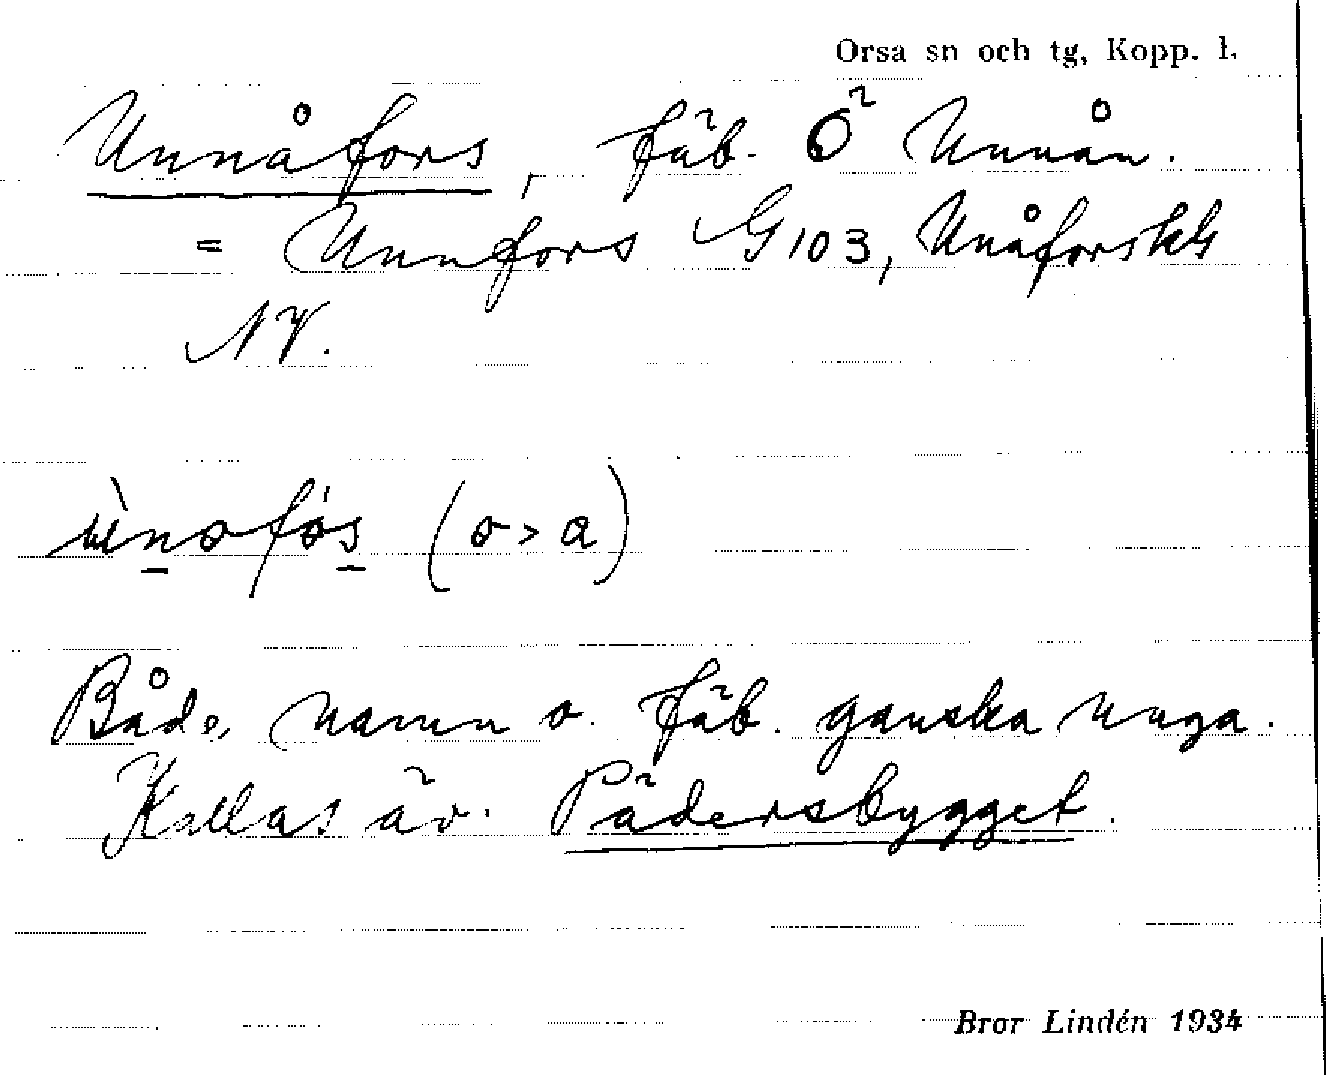 Orsa sn och tg, Kopp. l.
Unnåfors, fäb. Ö Unnån.
= Unnfors G 103, Unåforskls
NV.
ùnofós (o > a)
Både namn o. fäb. ganska unga.
Kallas äv. Pädersbygget.
Bror Lindén 1934